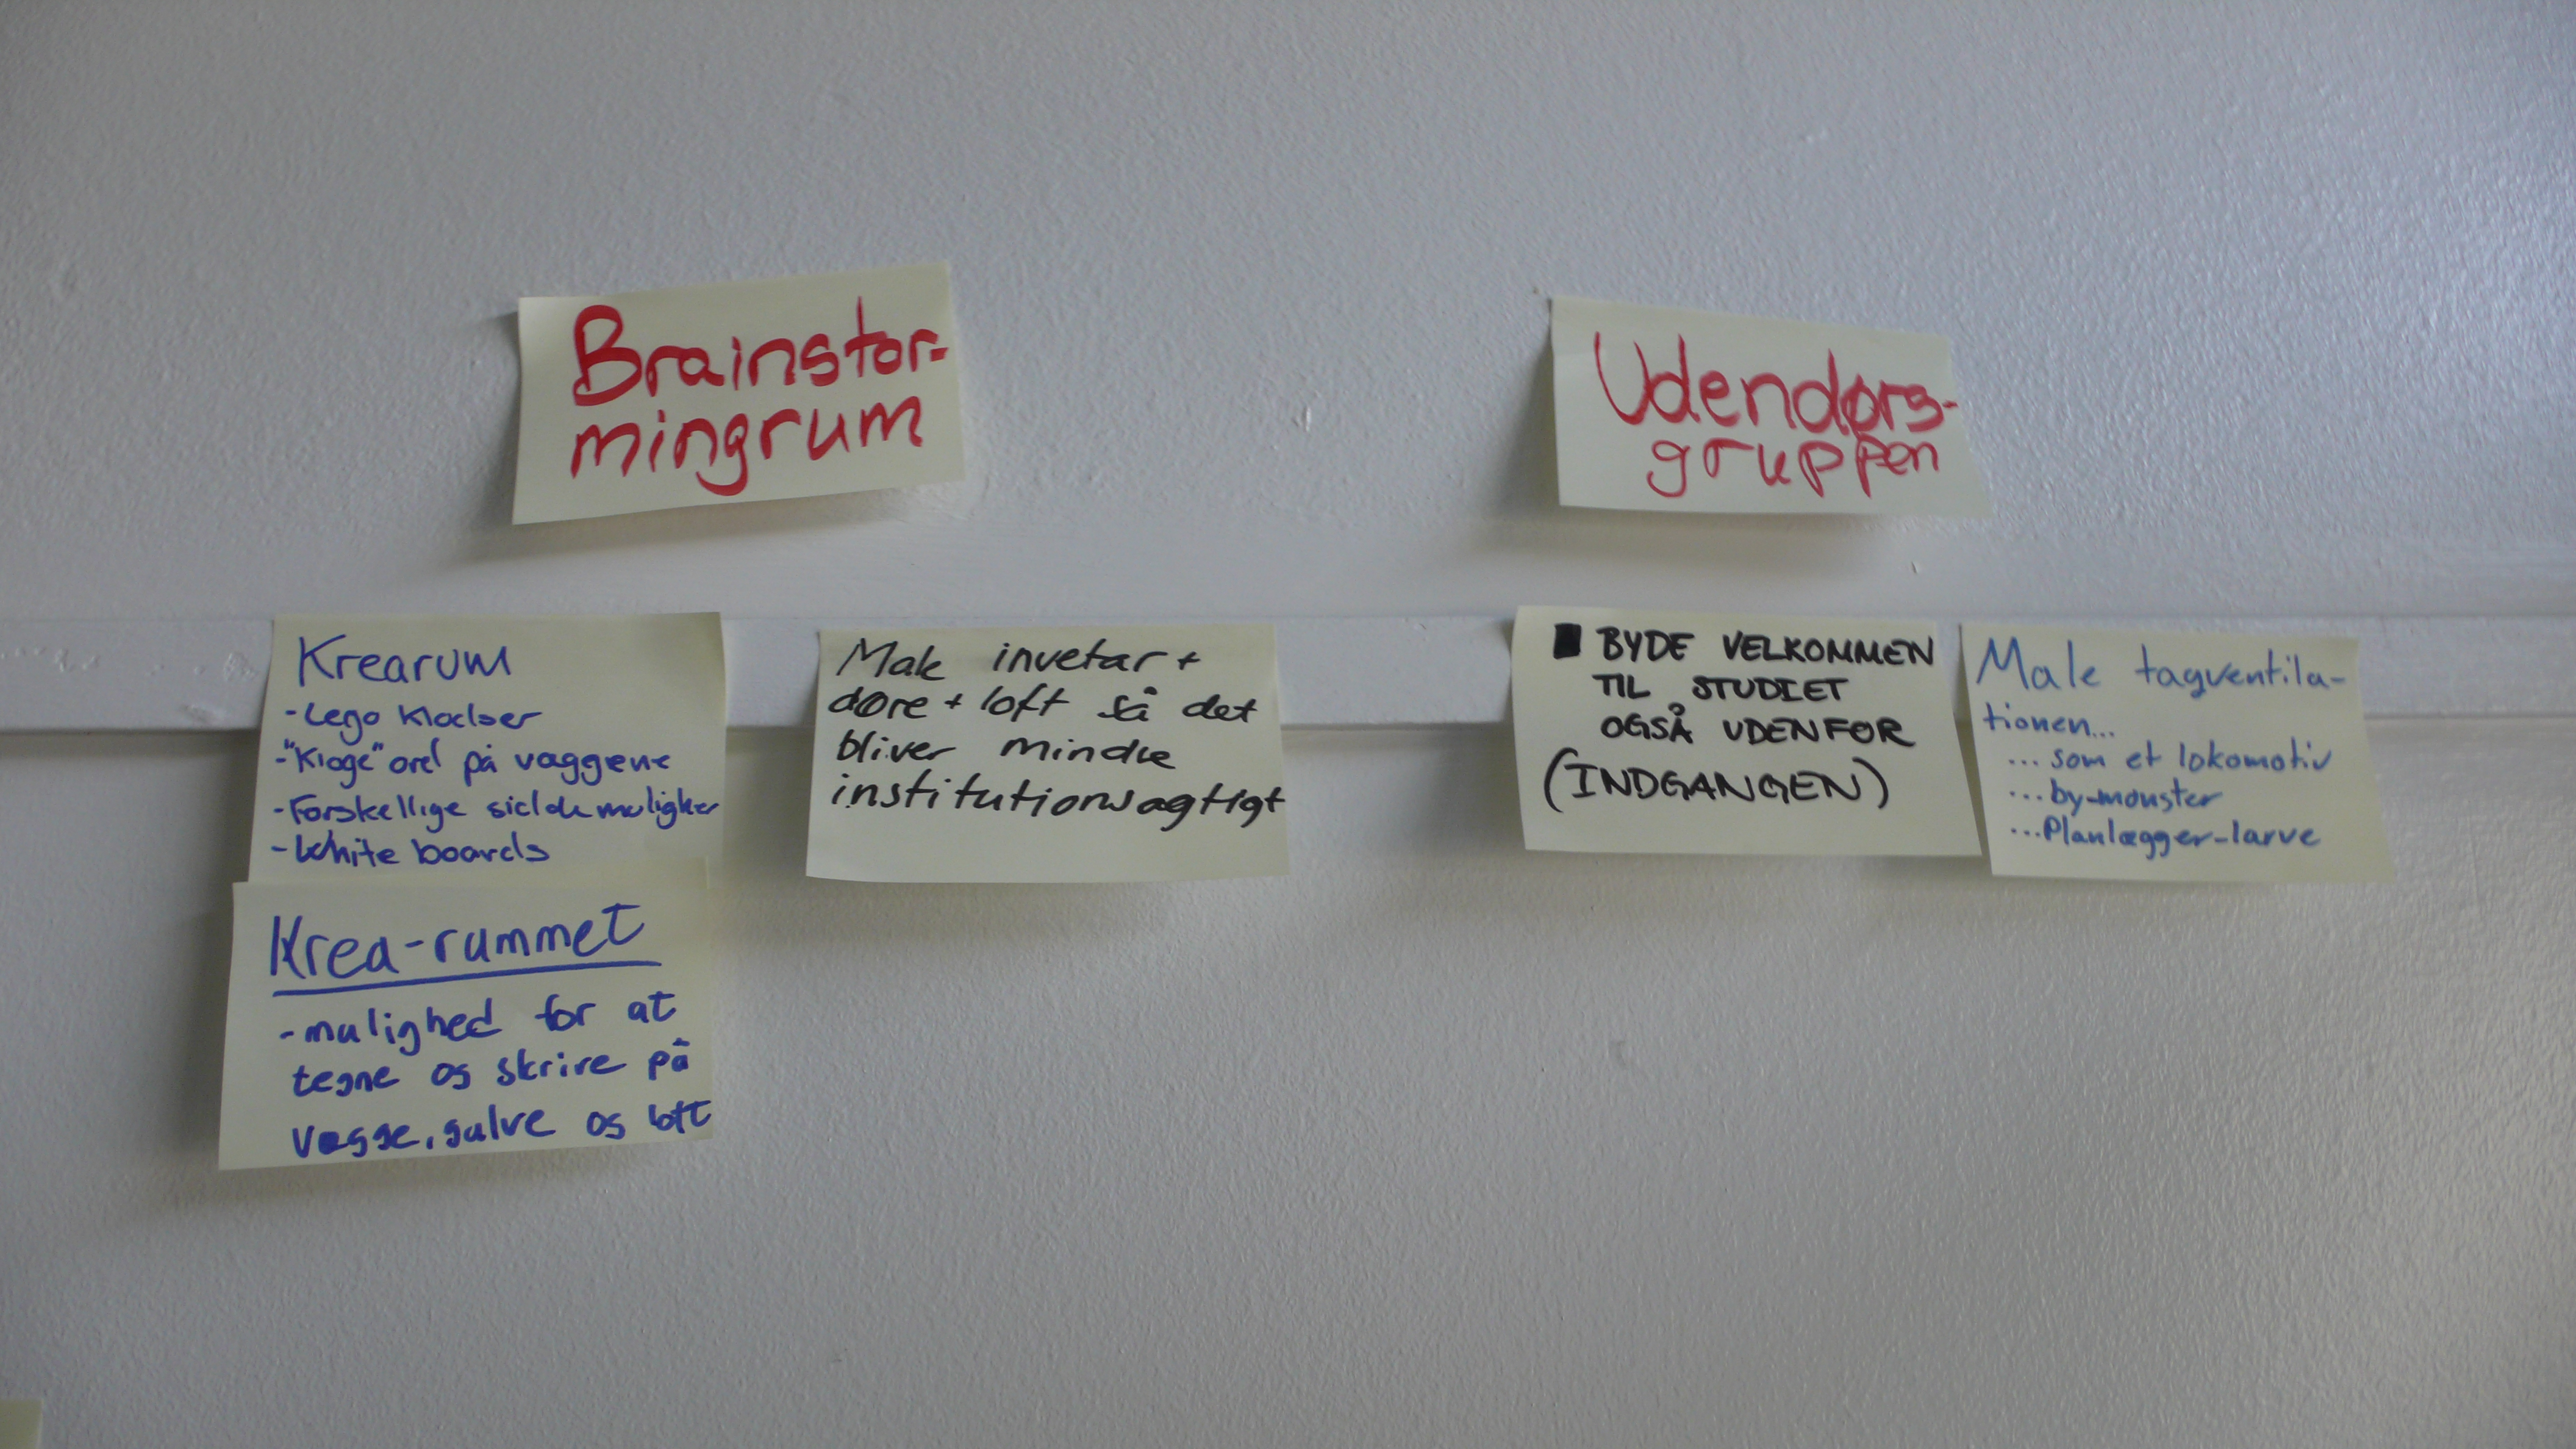 Brainstor-
mingrum
Udendørs-
gruppen
Krearum
- Lego Klodser
- "Kloge" ord på væggene
- Forskellige sidde muligheder
- White boards
Krea-rummet
- mulighed for at
tegne og skrive på
vægge, gulve og loft
Male invetar +
døre + loft så det
bliver mindre
institutionsagtigt
BYDE VELKOMMEN
TIL STUDIET
OGSÅ UDENFOR
(INDGANGEN)
Male tagventila-
tionen...
... som et lokomotiv
... by-monster
... Planlægger-larve